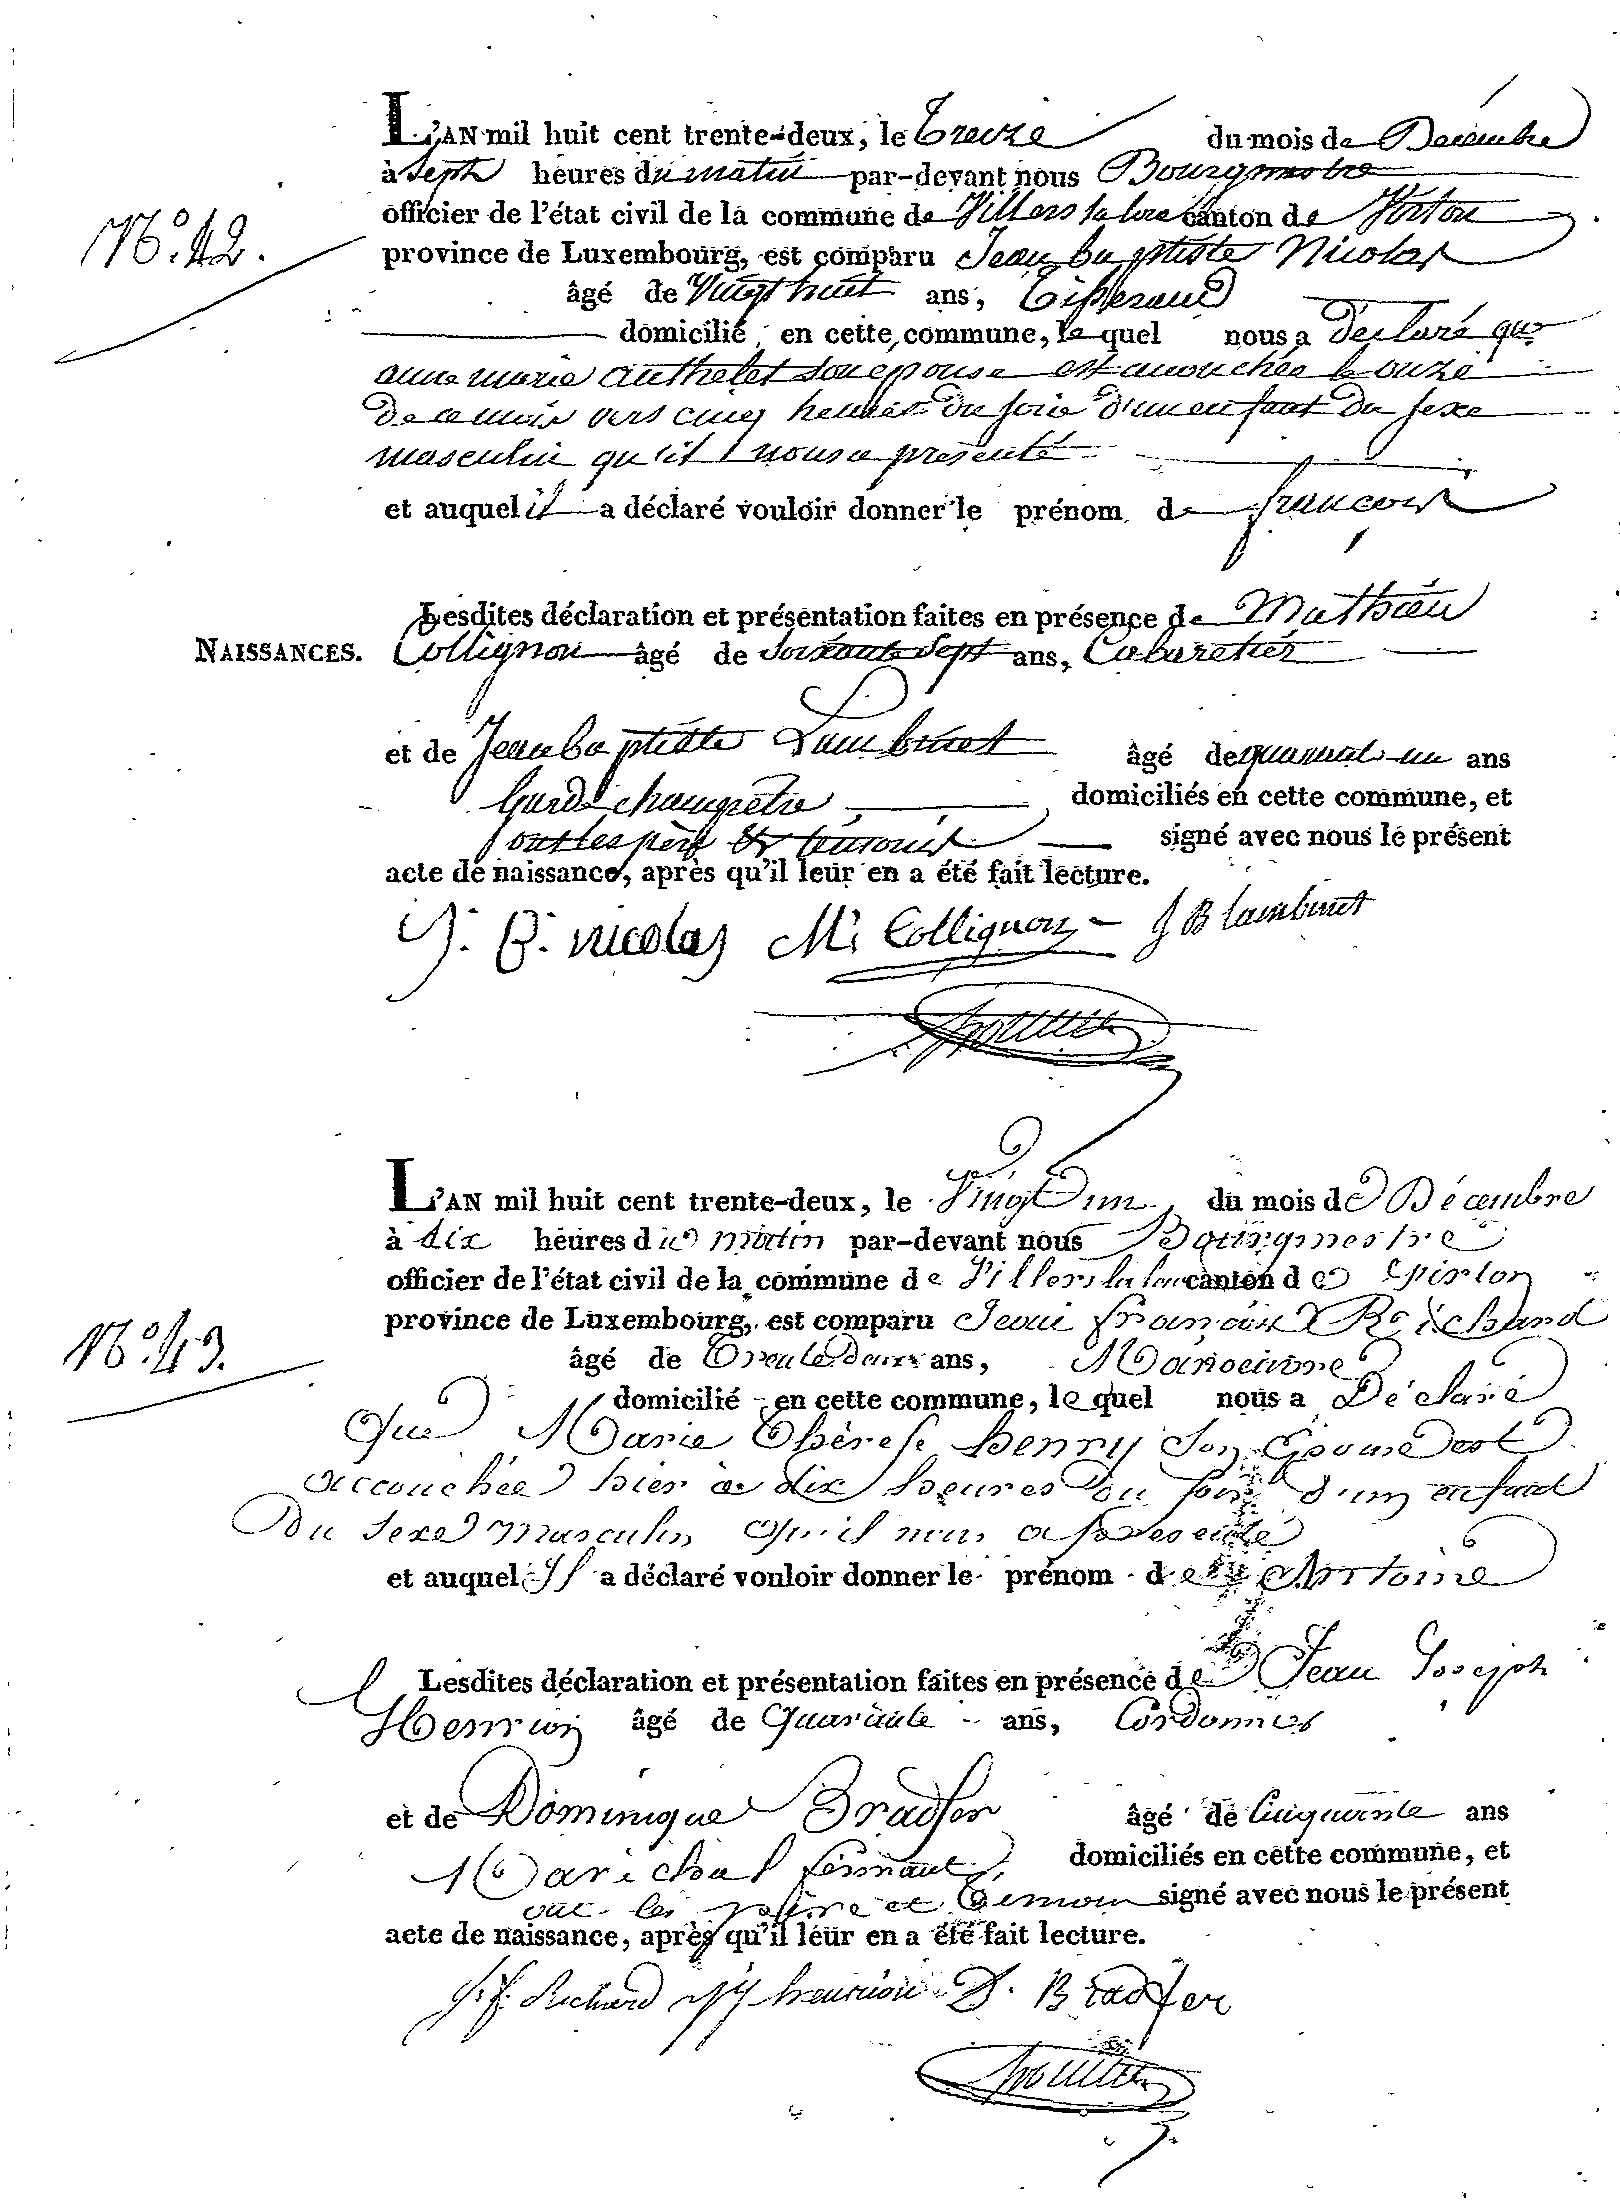 L'AN mil huit cent trente-deux, le Treize du mois de Décembre
à Sept heures du matin par-devant nous Bourgmestre
officier de l'état civil de la commune de Villers la loue canton de Virton
N.° 42.
province de Luxembourg, est comparu Jean baptiste Nicolas
âgé de Vingt huit ans, Tisserand
domicilié en cette commune, le quel nous a déclaré que
anne marie anthelet son epouse est accouchée le onze
de ce mois vers cinq heures du soir d'un enfant du sexe
masculin qu'il nous a présenté
et auquel il a déclaré vouloir donner le prénom de françois
Lesdites déclaration et présentation faites en présence de Mathieu
NAISSANCES.
Collignon âgé de Soixante Sept ans, Cabaretier
et de Jean baptiste Lambinet âgé de quarante un ans
Garde champetre domiciliés en cette commune, et
ont les père et témoins signé avec nous le présent
acte de naissance, après qu'il leur en a été fait lecture.
J. B. nicolas M. Collignon J B lambinet
L'AN mil huit cent trente-deux, le Vingt un du mois de Décembre
à dix heures du matin par-devant nous Bourgmestre
officier de l'état civil de la commune de Villers la loue canton de Virton
province de Luxembourg, est comparu Jean françois Richard
N.° 43.
âgé de Trente deux ans, Manoeuvre
domicilié en cette commune, le quel nous a Déclaré
Que Marie Thérese henry Son Epouse est
accouchée hier a dix heures du soir d'un enfant
Du Sexe masculin qu'il nous a presenté
et auquel Il a déclaré vouloir donner le prénom de Antoine
Lesdites déclaration et présentation faites en présence de Jean Joseph
Henrion âgé de Quarante ans, Cordonnier
et de Dominique Bradfer âgé de Cinquante ans
Marichal ferrant domiciliés en cette commune, et
ont les père et Temoin signé avec nous le présent
acte de naissance, après qu'il leur en a été fait lecture.
J. f. Richard JJ henrion D. Bradfer